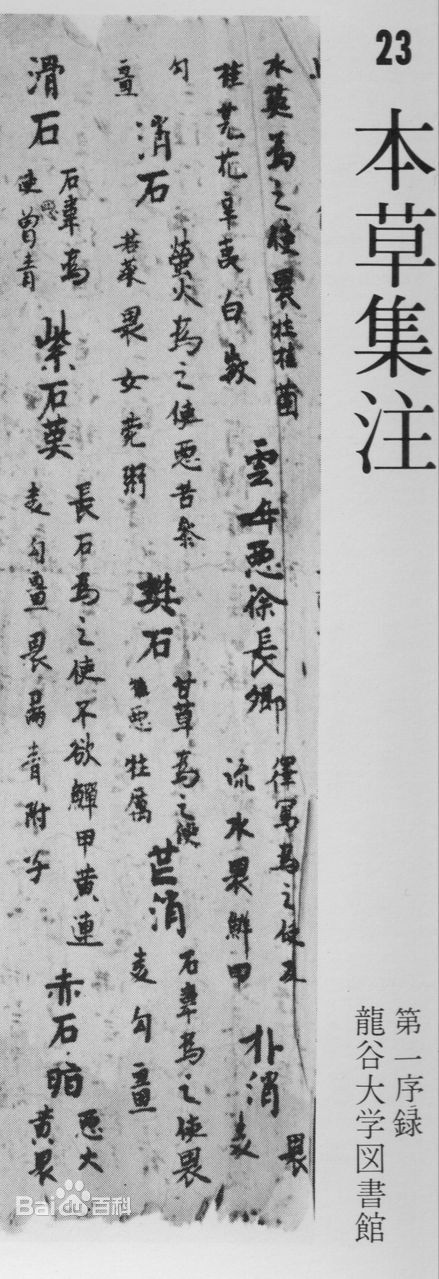 23
本草集注
第一序録
龍谷大学図書館
水英為之使畏牡桂菌
桂芫花辛夷白斂
雲母惡徐長卿
澤寫為之使及
流水畏鮮甲
朴消
畏
麦
勾
薑
消石
螢火為之使惡苦參
苦菜畏女菀粥
樊石
甘草為之使
惡牡厲
芒消
石韋為之使畏
麦勾薑
滑石
石韋為
惡曾青
紫石英
長石為之使不欲鱓甲黄連
麦勾薑畏扁青附子
赤石脂
惡大
黄畏
Bai du 百科